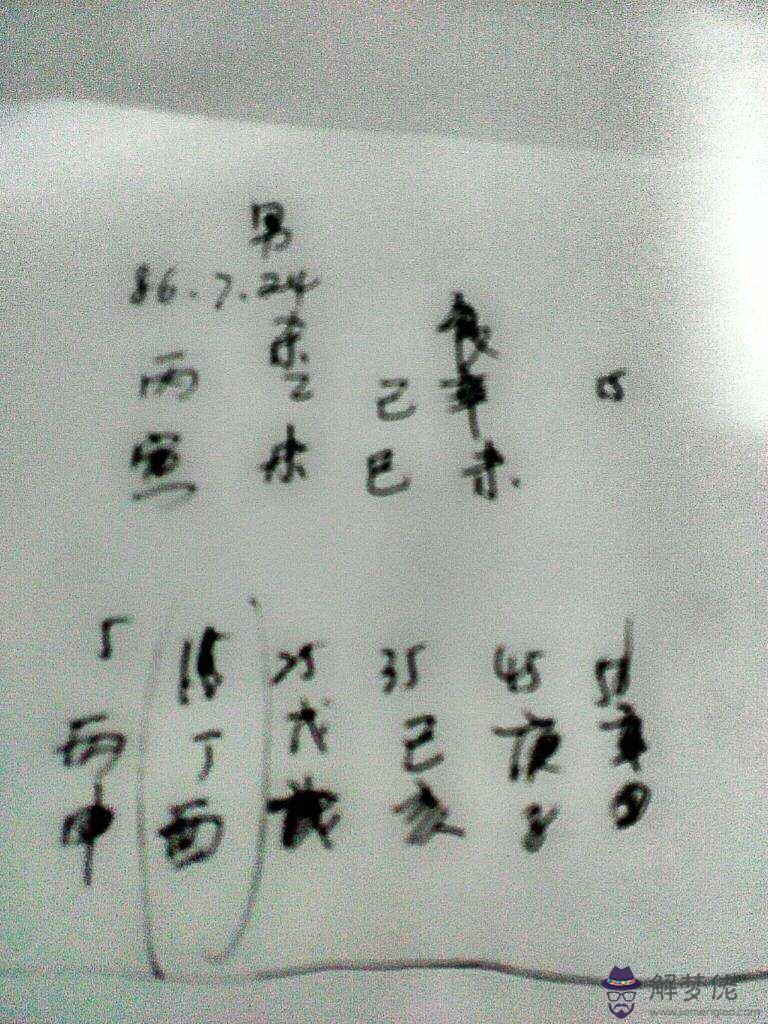 男
86.7.24
未
丙 乙 己 辛
寅 未 巳 未
5 15 25 35 45 55
丙 丁 戊 己 庚 辛
申 酉 戌 亥 子 丑
解梦佬